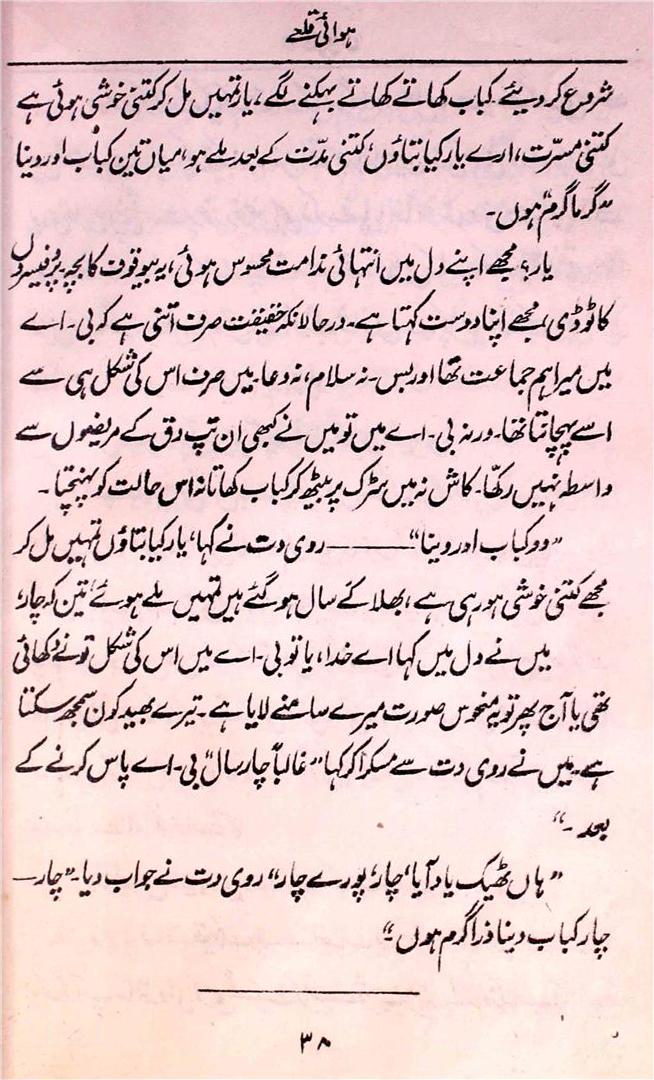 ہوائی قلعے
شروع کر دیئے۔ کباب کھاتے کھاتے بہکنے لگے، یار تمہیں مل کر کتنی خوشی ہوئی ہے
کتنی مسرّت، ارے یار کیا بتاؤں، کتنی مدّت کے بعد ملے ہو، میاں تین کباب اور دینا
”گرما گرم“ ہوں۔
یار، مجھے اپنے دل میں انتہائی ندامت محسوس ہوئی، یہ بیوقوف کا بچہ۔ پروفیسروں
کا ٹوڈی، مجھے اپنا دوست کہتا ہے۔ درحالانکہ حقیقت صرف اتنی ہے کہ بی۔ اے
میں میرا ہم جماعت تھا اور بس۔ نہ سلام، نہ دعا۔ میں صرف اس کی شکل ہی سے
اسے پہچانتا تھا۔ ورنہ بی۔ اے میں تو میں نے کبھی ان تپ دق کے مریضوں سے
واسطہ نہیں رکھّا۔ کاش نہ میں سڑک پر بیٹھ کر کباب کھاتا نہ اس حالت کو پہنچتا۔
”دو کباب اور دینا“ —— روی دت نے کہا، یار کیا بتاؤں تمہیں مل کر
مجھے کتنی خوشی ہو رہی ہے، بھلا کے سال ہو گئے ہیں تمہیں ملے ہوئے، تین کہ چار،
میں نے دل میں کہا اے خدا، یا تو بی۔ اے میں اس کی شکل تو نے دکھائی
تھی یا آج پھر تو یہ منحوس صورت میرے سامنے لایا ہے۔ تیرے بھید کون سمجھ سکتا
ہے۔ میں نے روی دت سے مسکرا کر کہا ”غالباً چار سال“ بی۔ اے پاس کرنے کے
بعد۔“
”ہاں ٹھیک یاد آیا، چار، پورے چار“ روی دت نے جواب دیا۔ ”چار—
چار کباب دینا ذرا گرم ہوں۔“
۳۸